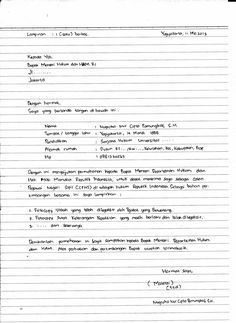 Lampiran : 1 (satu) berkas Yogyakarta, 11 Mei 2013
Kepada Yth.
Bapak Menteri Hukum dan HAM RI
Jl. ......
Jakarta
Dengan hormat,
Saya yang bertanda tangan di bawah ini :
Nama : Nugroho Nur Cipto S.H.
Tempat / tanggal lahir : Yogyakarta, 14 Maret 1988
Pendidikan : Sarjana Hukum Universitas
Alamat rumah : Dusun RT... RW... Kelurahan, Kec, Kabupaten,
HP :
Dengan ini mengajukan permohonan kepada Bapak Menteri Departemen Hukum dan
Hak Asasi Manusia Republik Indonesia, untuk dapat menerima saya sebagai Calon
Pegawai Negeri Sipil (CPNS) di Hukum Republik Indonesia. Sebagai bahan
pertimbangan bersama ini saya lampirkan :
1. Fotocopy Ijazah yang telah dilegalisir oleh Pejabat yang berwenang.
2. Fotocopy Surat Keterangan Kepolisian yang masih berlaku dan telah dilegalisir.
3. .... dan seterusnya
Demikianlah permohonan ini saya sampaikan kepada Bapak Menteri Departemen Hukum
dan HAM. Atas perhatian dan pertimbangan Bapak terimakasih.
Hormat saya,
(Materai)
(ttd)
Nugroho Nur Cipto S.H.